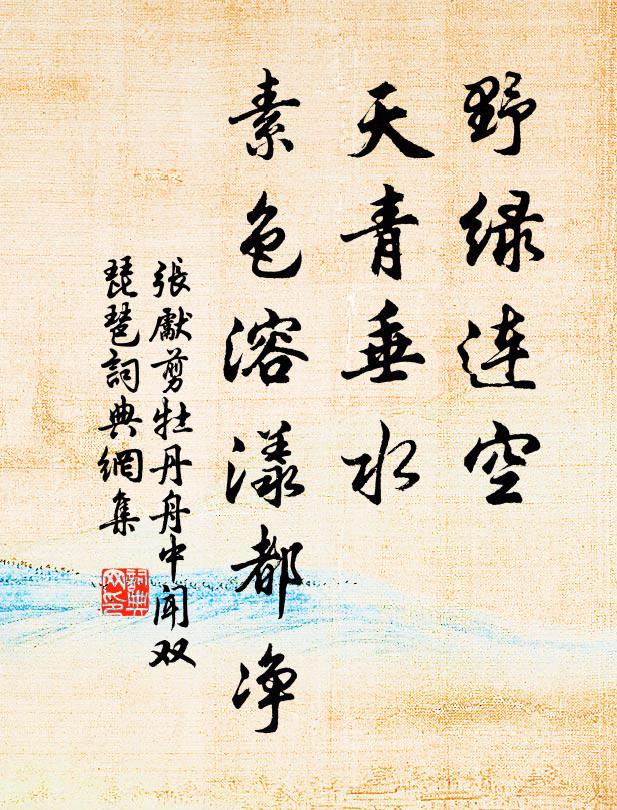 野绿连空
天青垂水
素色溶漾都净
張獻剪牡丹舟中闻双
琵琶詞典網集
詞典
网印